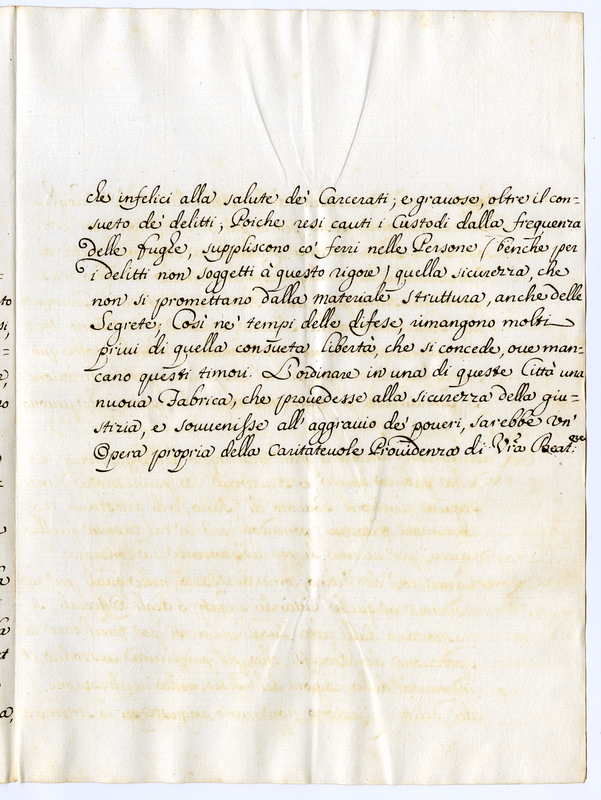 che infelici alla salute de' Carcerati; e gravose, oltre il con=
sueto de' delitti; Poiche resi cauti i Custodi dalla frequenza
delle fughe, suppliscono co' ferri nelle Persone (benche per
i delitti non soggetti à questo rigore) quella sicurezza, che
non si promettano dalla materiale struttura, anche delle
Segrete; Così ne' tempi delle difese, rimangono molti
privi di quella consueta libertà, che si concede, ove man=
cano questi timori. L'ordinare in una di queste Città una
nuova Fabrica, che provedesse alla sicurezza della giu=
stizia, e souvenisse all' aggravio de' poveri, sarebbe un'
Opera propria della Caritatevole Providenza di Vrã Beat:ne
to
si,